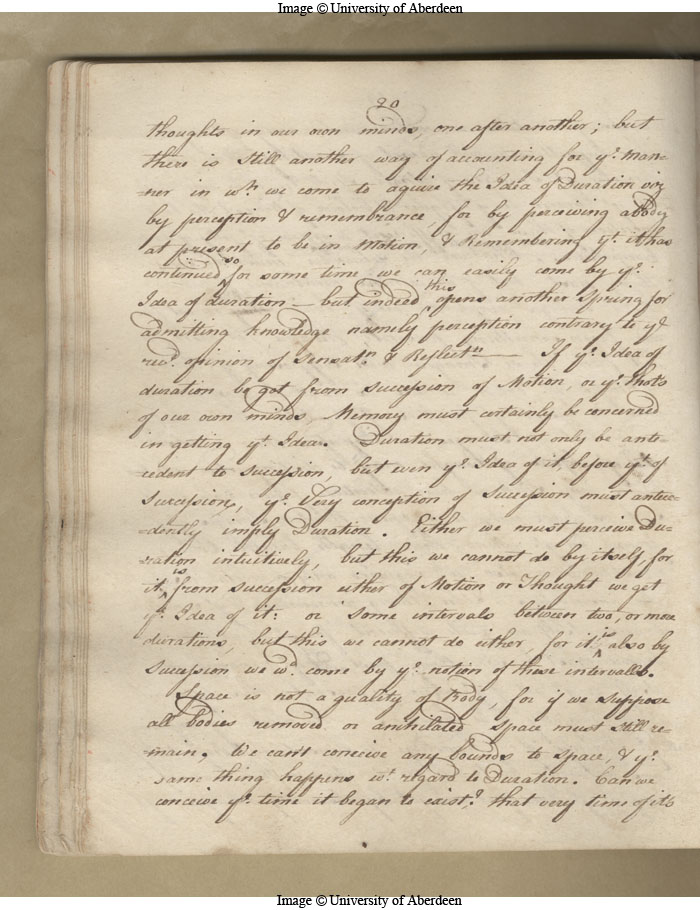 Image © University of Aberdeen
20
thoughts in our own minds, one after another; but
there is still another way of accounting for ye. man-
-ner in wh. we come to aquire the Idea of Duration viz
by perception & remembrance, for by perceiving a body
at present to be in Motion, & Remembering yt. it has
continued so for some time we can easily come by ye.
Idea of duration — but indeed this opens another Spring for
admitting knowledge namely perception contrary to ye
recd. opinion of Sensatn. & Reflectn — If ye. Idea of
duration be got from succession of Motion, or ye. thots
of our own minds, Memory must certainly be concerned
in getting yt. Idea. Duration must not only be ante-
cedent to succession, but even ye. Idea of it, before yt. of
Succession, ye. Very conception of Succession must antece-
-dently imply Duration. Either we must perceive Du-
-ration intuitively, but this we cannot do by itself, for
it is from succession either of Motion or Thought we get
ye. Idea of it: or some intervals between two, or more
durations, but this we cannot do either, for it is also by
Succession we wd. come by ye. notion of these intervalls.
Space is not a quality of Body, for if we suppose
all bodies removed or anihilated space must still re-
-main, We cant conceive any bounds to space, & ye.
same thing happens wt. regard to Duration. Can we
conceive ye. time it began to exist? that very time of its
Image © University of Aberdeen